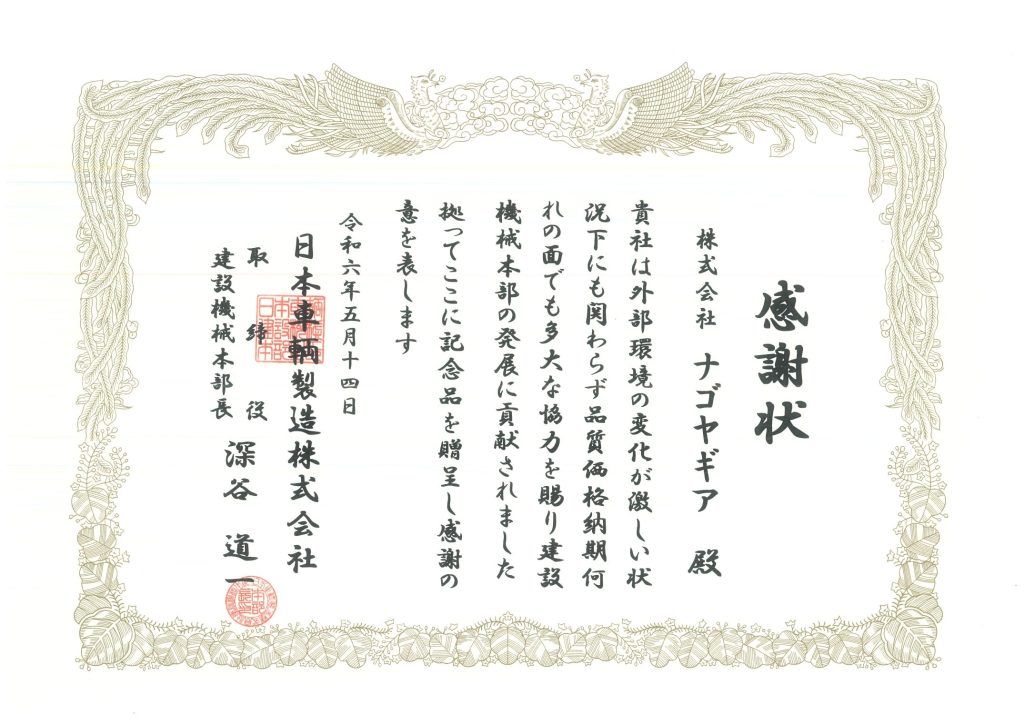 感謝状
株式会社 ナゴヤギア 殿
貴社は外部環境の変化が激しい状
況下にも関わらず品質価格納期何
れの面でも多大な協力を賜り建設
機械本部の発展に貢献されました
拠ってここに記念品を贈呈し感謝の
意を表します
令和六年五月十四日
日本車輌製造株式会社
取締役
建設機械本部長
深谷 道一